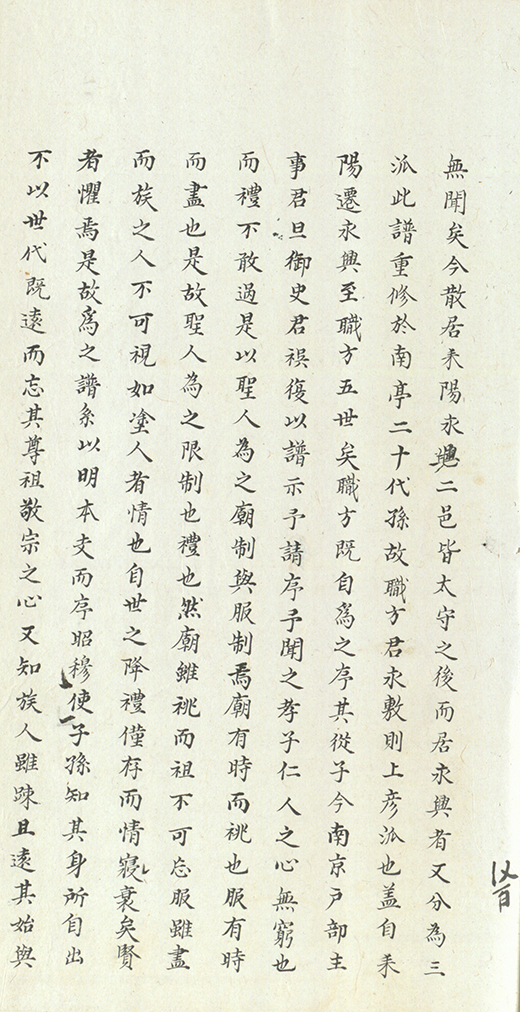 無聞矣今散居耒陽永興二邑皆太守之後而居永興者又分為三
派此譜重修於南亭二十代孫故職方君永敷則上彥派也盖自耒
陽遷永興至職方五世矣職方既自為之序其從子今南京戶部主
事君旦御史君祺復以譜示予請序予聞之孝子仁人之心無窮也
而禮不敢過是以聖人為之廟制與服制焉廟有時而祧也服有時
而盡也是故聖人為之限制也禮也然廟雖祧而祖不可忘服雖盡
而族之人不可視如塗人者情也自世之降禮僅存而情寖衰矣賢
者懼焉是故爲之譜系以明本支而序昭穆使子孫知其身所自出
不以世代既遠而忘其尊祖敬宗之心又知族人雖踈且遠其始與